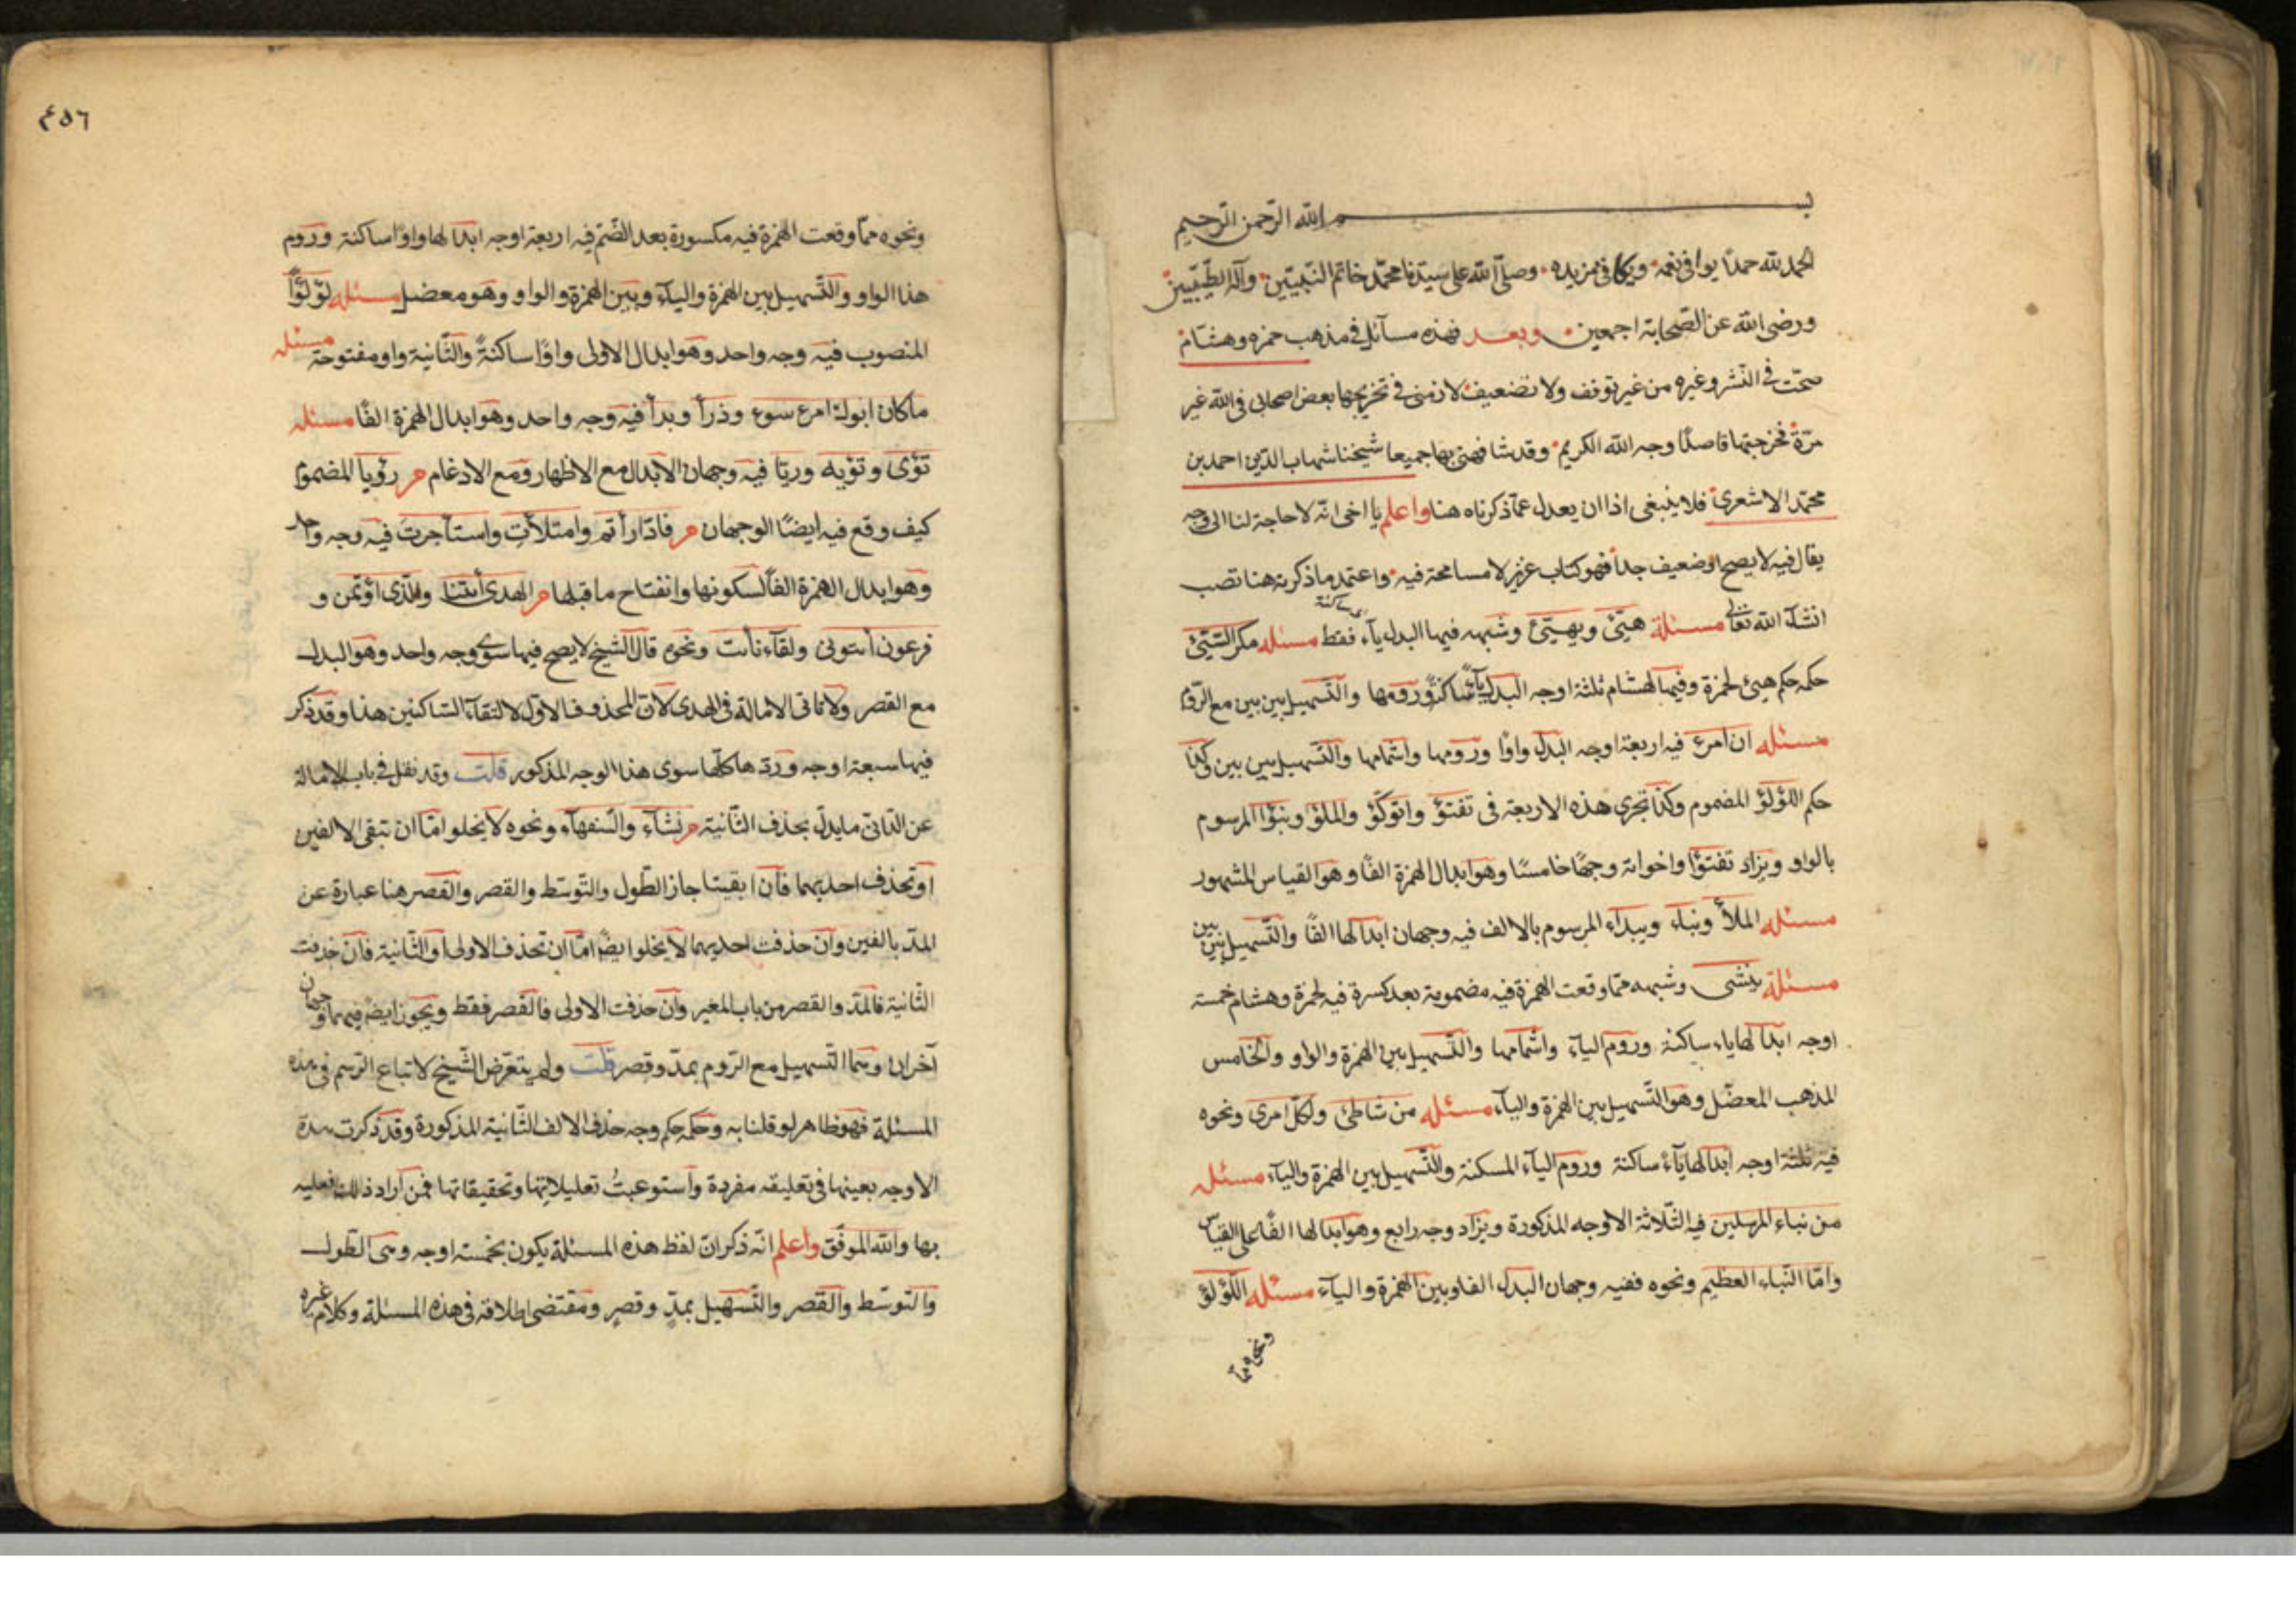 بسم الله الرحمن الرحيم
الحمد لله حمدا يوافى نعمه ويكافى مزيده وصلى الله على سيدنا محمد خاتم النبيين وآله الطيبين
ورضى الله عن الصحابة اجمعين وبعد فهذه مسائل فى مذهب حمزه وهشام
صحت فى النشر وغيره من غير توقف ولا تضعيف لازمنى فى تخريجها بعض اصحابى فى الله غير
مرة فخرجتها قاصدا وجه الله الكريم وقد شافهنى بها جميعا شيخنا شهاب الدين احمد بن
محمد الاشعرى فلا ينبغى اذا ان يعدل عما ذكرناه هنا واعلم يا اخى انه لا حاجة لنا الى وجه
يقال فيه لا يصح او ضعيف جدا فهو كتاب عزيز لا مسامحة فيه واعتمد ما ذكرته هنا تصب
انشاء الله تعالى مسئلة هيئ ويهيئ وشبهه فيها البدل ياء ساكنة فقط مسئله مكر السيئ
حكمه حكم هيئ لحمزة وفيها لهشام ثلثة اوجه البدل ياء ساكنة ورومها والتسهيل بين بين مع الروم
مسئله ان امرؤ فيه اربعة اوجه البدل واوا ورومها واشمامها والتسهيل بين بين وكذا
حكم اللؤلؤ المضموم وكذا تجرى هذه الاربعة فى تفتؤ واتوكؤ والملؤ ونبؤا المرسوم
بالواو ويزاد تفتؤا واخواته وجها خامسا وهو ابدال الهمزة الفا وهو القياس المشهور
مسئله الملأ ونباء ويبداء المرسوم بالالف فيه وجهان ابدالها الفا والتسهيل بين بين
مسئلة ينشئ وشبهه مما وقعت الهمزة فيه مضمومة بعد كسرة فيه لحمزة وهشام خمسة
اوجه ابدالها ياء ساكنة وروم الياء واشمامها والتسهيل بين الهمزة والواو والخامس
المذهب المعضل وهو التسهيل بين الهمزة والياء مسئله من شاطئ ولكل امرئ ونحوه
فيه ثلثة اوجه ابدالها ياء ساكنة وروم الياء المسكنة والتسهيل بين الهمزة والياء مسئله
من نباء المرسلين فيه الثلاثة الاوجه المذكورة ويزاد وجه رابع وهو ابدالها الفا على القياس
واما النباء العظيم ونحوه ففيه وجهان البدل الفا وبين الهمزة والياء مسئله اللؤلؤ
ونحوه مما
٤٥٦
ونحوه مما وقعت الهمزة فيه مكسورة بعد الضم فيه اربعة اوجه ابدالها واوا ساكنة وروم
هذا الواو والتسهيل بين الهمزة والياء وبين الهمزة والواو وهو معضل مسئله لؤلؤا
المنصوب فيه وجه واحد وهو ابدال الاولى واوا ساكنة والثانية واو مفتوحة مسئله
ما كان ابوك امرء سوء وذرأ وبدأ فيه وجه واحد وهو ابدال الهمزة الفا مسئله
تؤى وتؤيه وريا فيه وجهان الابدال مع الاظهار ومع الادغام م رؤيا المضموم
كيف وقع فيه ايضا الوجهان م فادارأتم وامتلأت واستأجرت فيه وجه واحد
وهو ابدال الهمزة الفا لسكونها وانفتاح ما قبلها م الهدى أئتنا والذى اؤتمن و
فرعون أئتونى ولقاءنا أئت ونحوه قال الشيخ لا يصح فيها سوى وجه واحد وهو البدل
مع القصر ولا تاتى الامالة فى الهدى لان المحذوف الاول لالتقاء الساكنين هذا وقد ذكر
فيها سبعة اوجه وردها كلها سوى هذا الوجه المذكور قلت وقد نقل فى باب الامالة
عن الدانى ما يدل بحذف الثانية م نشاء والسفهاء ونحوه لا يخلو اما ان تبقى الالفين
او تحذف احديهما فان ابقيتا جاز الطول والتوسط والقصر والقصر هنا عبارة عن
المد بالفين وان حذفت احديهما لا يخلو ايضا اما ان تحذف الاولى او الثانية فان حذفت
الثانية فالمد والقصر من باب المغير وان حذفت الاولى فالقصر فقط ويجوز ايضا فيهما وجهان
آخران وهما التسهيل مع الروم بمد وقصر قلت ولم يتعرض الشيخ لاتباع الرسم فى هذه
المسئلة فهو ظاهر لو قلنا به وحكمه حكم وجه حذف الالف الثانية المذكورة وقد ذكرت هذه
الاوجه بعينها فى تعليقه مفردة واستوعبت تعليلاتها وتحقيقاتها فمن اراد ذالك فعليه
بها والله الموفق واعلم انه ذكر ان لفظ هذه المسئلة يكون بخمسة اوجه وهى الطول
والتوسط والقصر والتسهيل بمد وقصر ومقتضى اطلاقه فى هذه المسئلة وكلام غيره